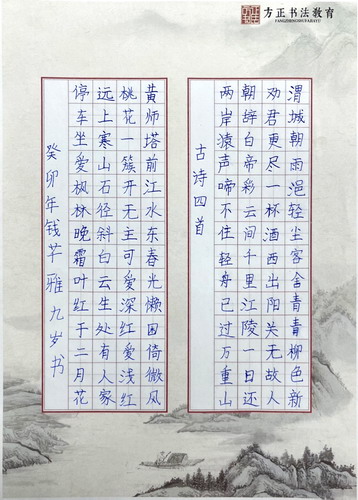 方正书法教育
FANGZHENGSHUFAJIAOYU
渭城朝雨浥轻尘客舍青青柳色新
劝君更尽一杯酒西出阳关无故人
朝辞白帝彩云间千里江陵一日还
两岸猿声啼不住轻舟已过万重山
古诗四首
黄师塔前江水东春光懒困倚微风
桃花一簇开无主可爱深红爱浅红
远上寒山石径斜白云生处有人家
停车坐爱枫林晚霜叶红于二月花
癸卯年钱芊雅九岁书